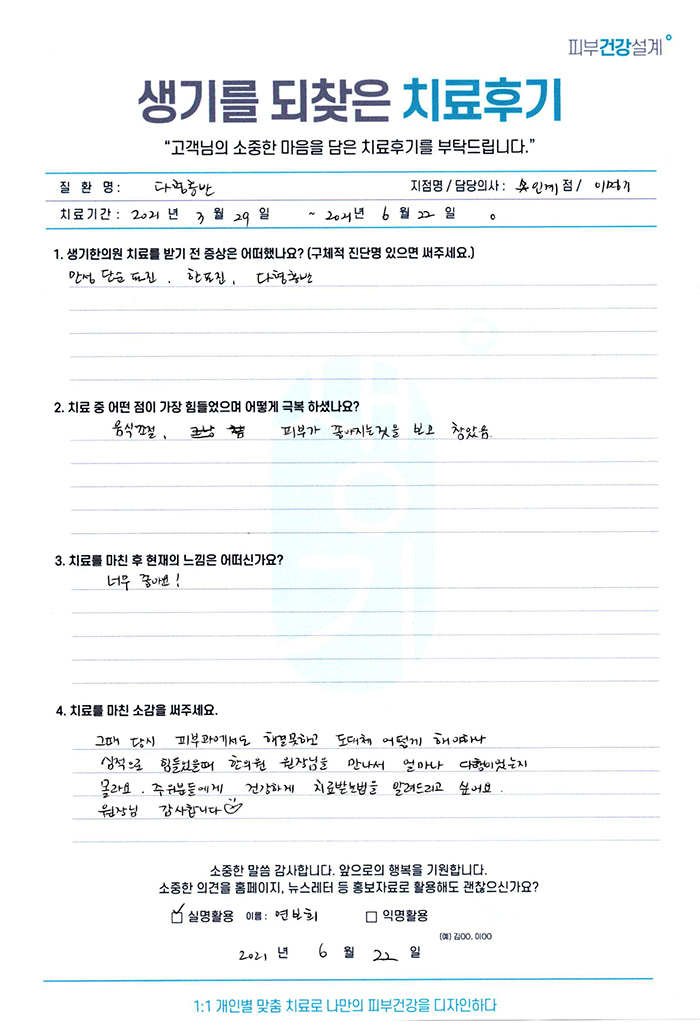 피부건강설계
생기를 되찾은 치료후기
“고객님의 소중한 마음을 담은 치료후기를 부탁드립니다.”
질 환 명 : 다형홍반 지점명 / 담당의사 : 점 /
치료기간 : 2021 년 3 월 29 일 ~ 2021년 6 월 22 일
1. 생기한의원 치료를 받기 전 증상은 어떠했나요? (구체적 진단명 있으면 써주세요.)
만성 단순 포진, 한포진, 다형홍반
2. 치료 중 어떤 점이 가장 힘들었으며 어떻게 극복 하셨나요?
음식조절, 피부가 좋아지는것을 보고 참았음.
3. 치료를 마친 후 현재의 느낌은 어떠신가요?
너무 좋아요!
4. 치료를 마친 소감을 써주세요.
그때 당시 피부과에서도 해결못하고 도대체 어떻게 해야하나
심적으로 힘들었을때 한의원 원장님을 만나서 얼마나 다행이었는지
몰라요. 주위분들에게 건강하게 치료받는법을 알려드리고 싶어요.
원장님 감사합니다
생기
소중한 말씀 감사합니다. 앞으로의 행복을 기원합니다.
소중한 의견을 홈페이지, 뉴스레터 등 홍보자료로 활용해도 괜찮으신가요?
실명활용 이름 : 연보희 익명활용
(예) 김OO, 이OO
2021 년 6 월 22 일
1:1 개인별 맞춤 치료로 나만의 피부건강을 디자인하다